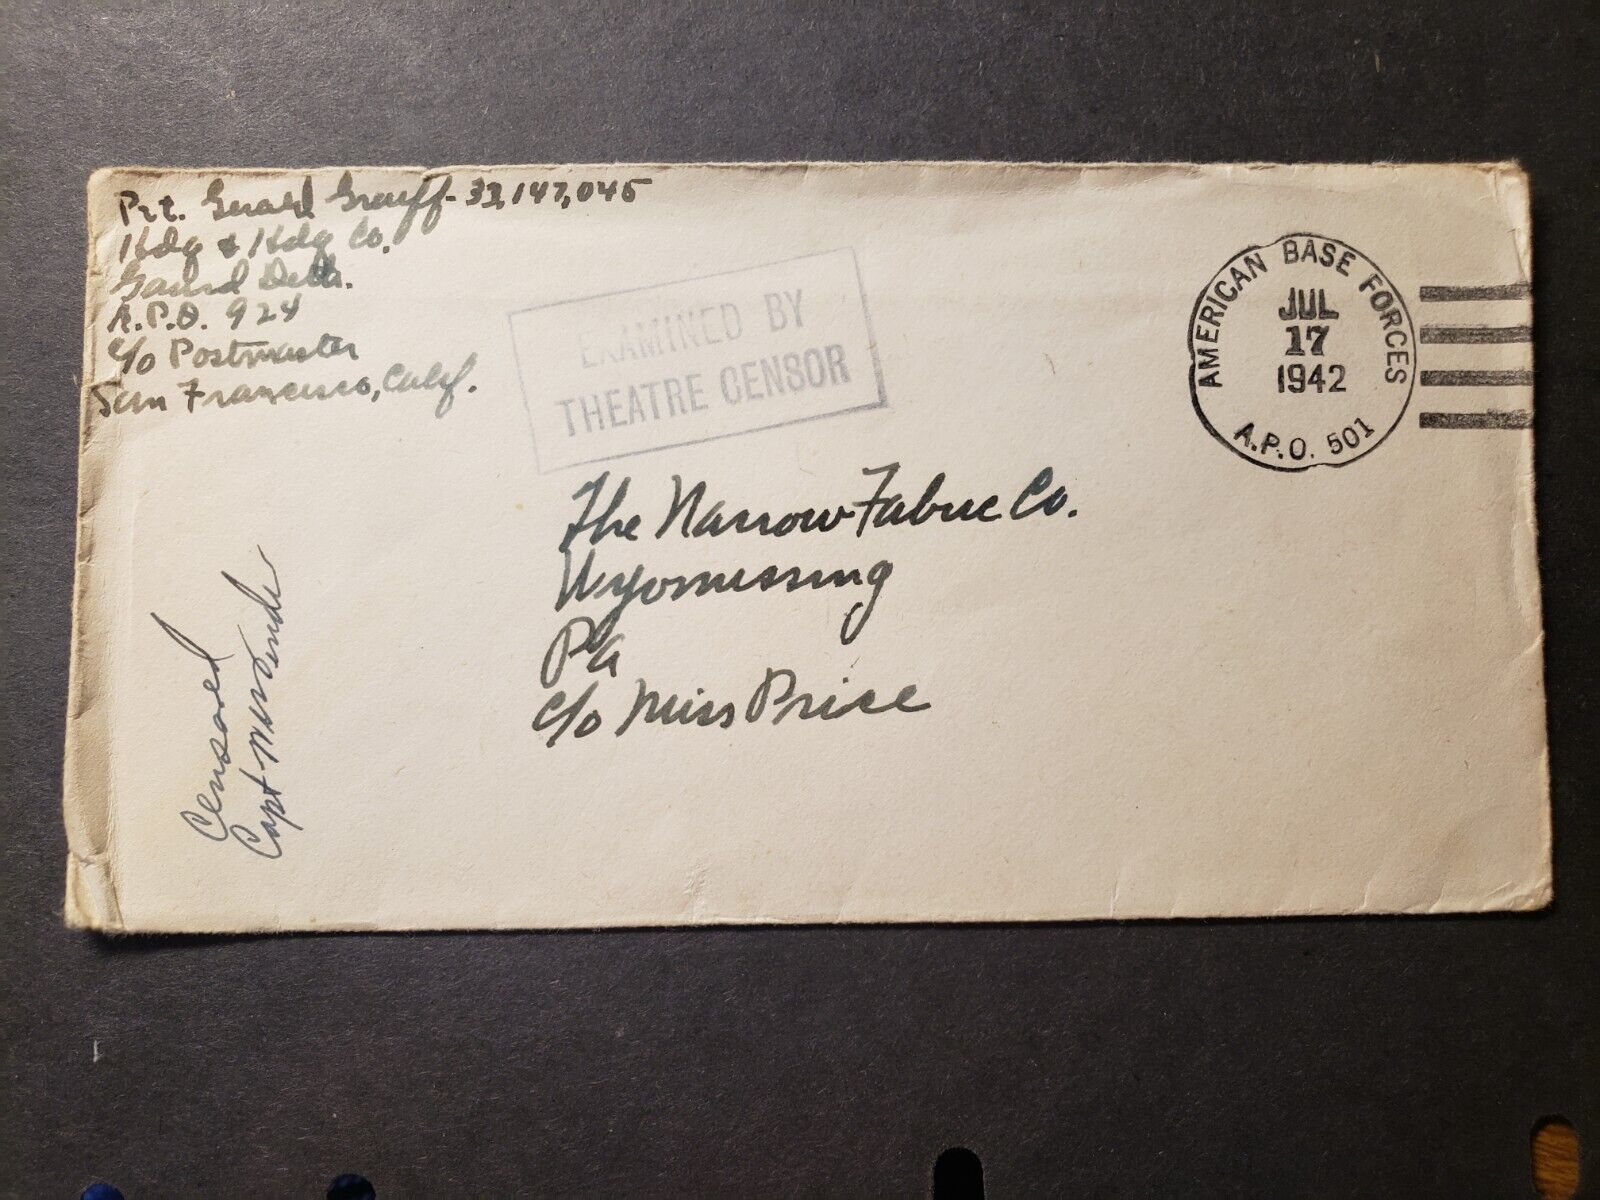 Pvt. Gerard Grauff - 33,147,045
Hdq & Hdq Co.
A.P.O. 924
c/o Postmaster
San Francisco, Calif.
EXAMINED BY
THEATRE CENSOR
AMERICAN BASE FORCES
JUL
17
1942
A.P.O. 501
The Narrow Fabric Co.
Wyomissing
Pa
c/o Miss Price
Censored
Capt